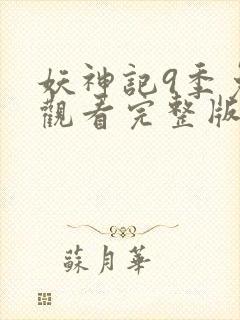 妖神記9季
觀看完整版
蘇月華